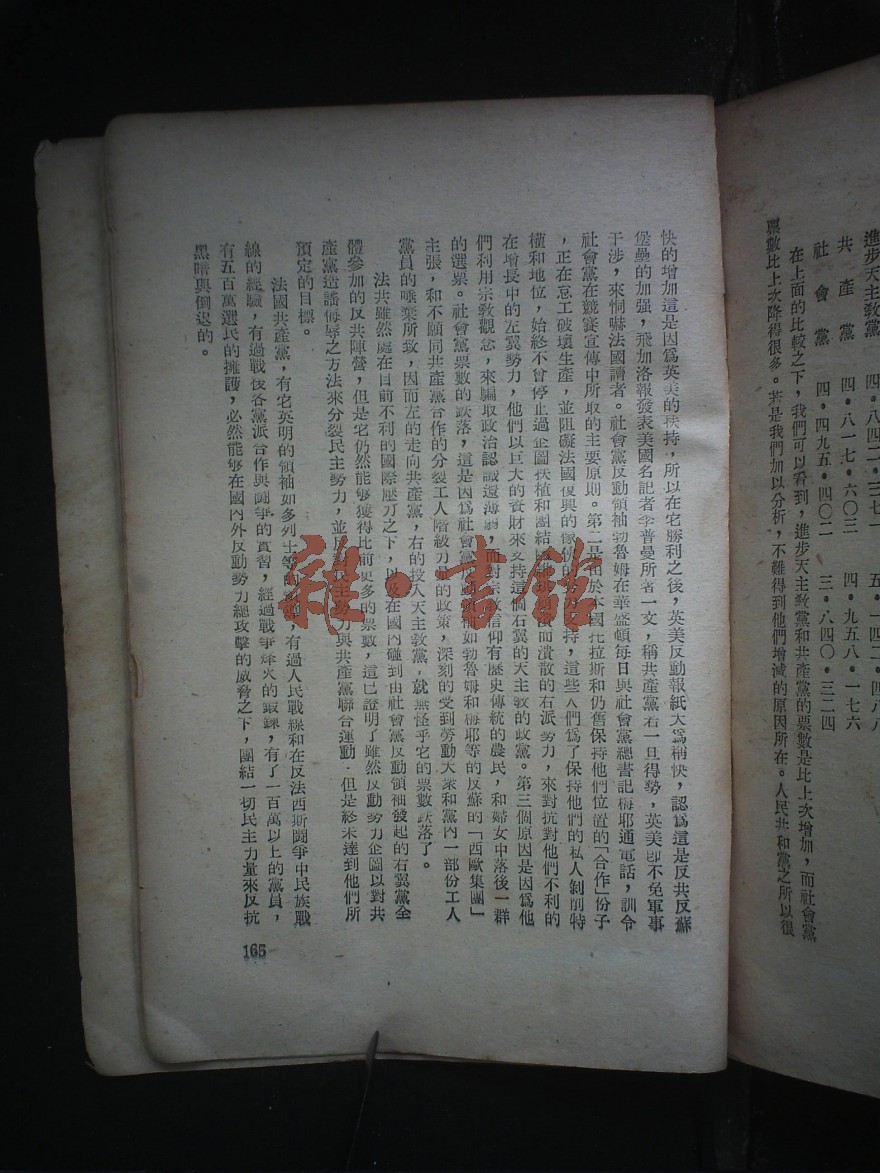 進步天主教黨 四・八四二・三七二 五・一四二・四八八
共產黨 四・八一七・六〇三 四・九五八・一七六
社會黨 四・四九五・四〇二 三・八四〇・三二四
在上面的比較之下，我們可以看到，進步天主教黨和共產黨的票數是比上次增加，而社會黨
票數比上次降得很多。若是我們加以分析，不難得到他們增減的原因所在。人民共和黨之所以很
快的增加這是因爲英美的扶持，所以在它勝利之後，英美反動報紙大爲稱快，認爲這是反共反蘇
堡壘的加强，飛加洛報發表美國名記者李普曼所著一文，稱共產黨若一旦得勢，英美即不免軍事
干涉，來恫嚇法國讀者。社會黨反動領袖勃魯姆在華盛頓每日與社會黨總書記梅耶通電話，訓令
社會黨在競賽宣傳中所取的主要原則。第二是由於本國托拉斯和仍舊保持他們位置的「合作」份子
，正在怠工破壞生產，並阻礙法國復興的傢伙的勢力支持，這些人們爲了保持他們的私人剝削特
權和地位，始終不曾停止過企圖扶植和團結因戰敗後而潰散的右派勢力，來對抗對他們不利的
在增長中的左翼勢力，他們以巨大的資財來支持這個右翼的天主教的政黨。第三個原因是因爲他
們利用宗教觀念，來騙取政治認識還薄弱，而對宗教信仰有歷史傳統的農民，和婦女中落後一群
的選票。社會黨票數的跌落，這是因爲社會黨反動領袖如勃魯姆和梅耶等的反蘇的「西歐集團」
主張，和不願同共產黨合作的分裂工人階級力量的政策，深刻的受到勞動大衆和黨內一部份工人
黨員的唾棄所致，因而左的走向共產黨，右的投入天主敎黨，就無怪乎它的票數跌落了。
法共雖然處在目前不利的國際壓力之下，以及在國內碰到由社會黨反動領袖發起的右翼黨全
體參加的反共陣營，但是它仍然能够獲得比前更多的票數，這已證明了雖然反動勢力企圖以對共
產黨造謠侮辱之方法來分裂民主勢力，並反對民主勢力與共產黨聯合運動，但是終未達到他們所
預定的目標。
法國共產黨，有它英明的領袖如多列士等的領導，有過人民戰線和在反法西斯鬪爭中民族戰
線的經驗，有過戰後各黨派合作與鬪爭的實習，經過戰爭烽火的鍛鍊，有了一百萬以上的黨員，
有五百萬選民的擁護，必然能够在國內外反動勢力總攻擊的威脅之下，團結一切民主力量來反抗
黑暗與倒退的。
165
雜・書館